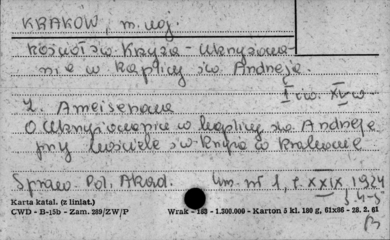 KRAKÓW, m. woj.
kościół św. Krzyża - Ukrzyżowa-
nie w kaplicy św. Andrzeja
I ćw. XV w.
Z. Ameisenowa
O Ukrzyżowanie w kaplicy św. Andrzeja
przy kościele św. Krzyża w Krakowie
Spraw. Pol. Akad. Um. nr 1, t. XXIX, 1924
s. 4-5
Karta katal. (z liniat.)
CWD - B-15b - Zam. 289/ZW/P Wrak - 183 - 1.200.000 - Karton 5 kl. 180 g, 61x86 - 28. 2. 61